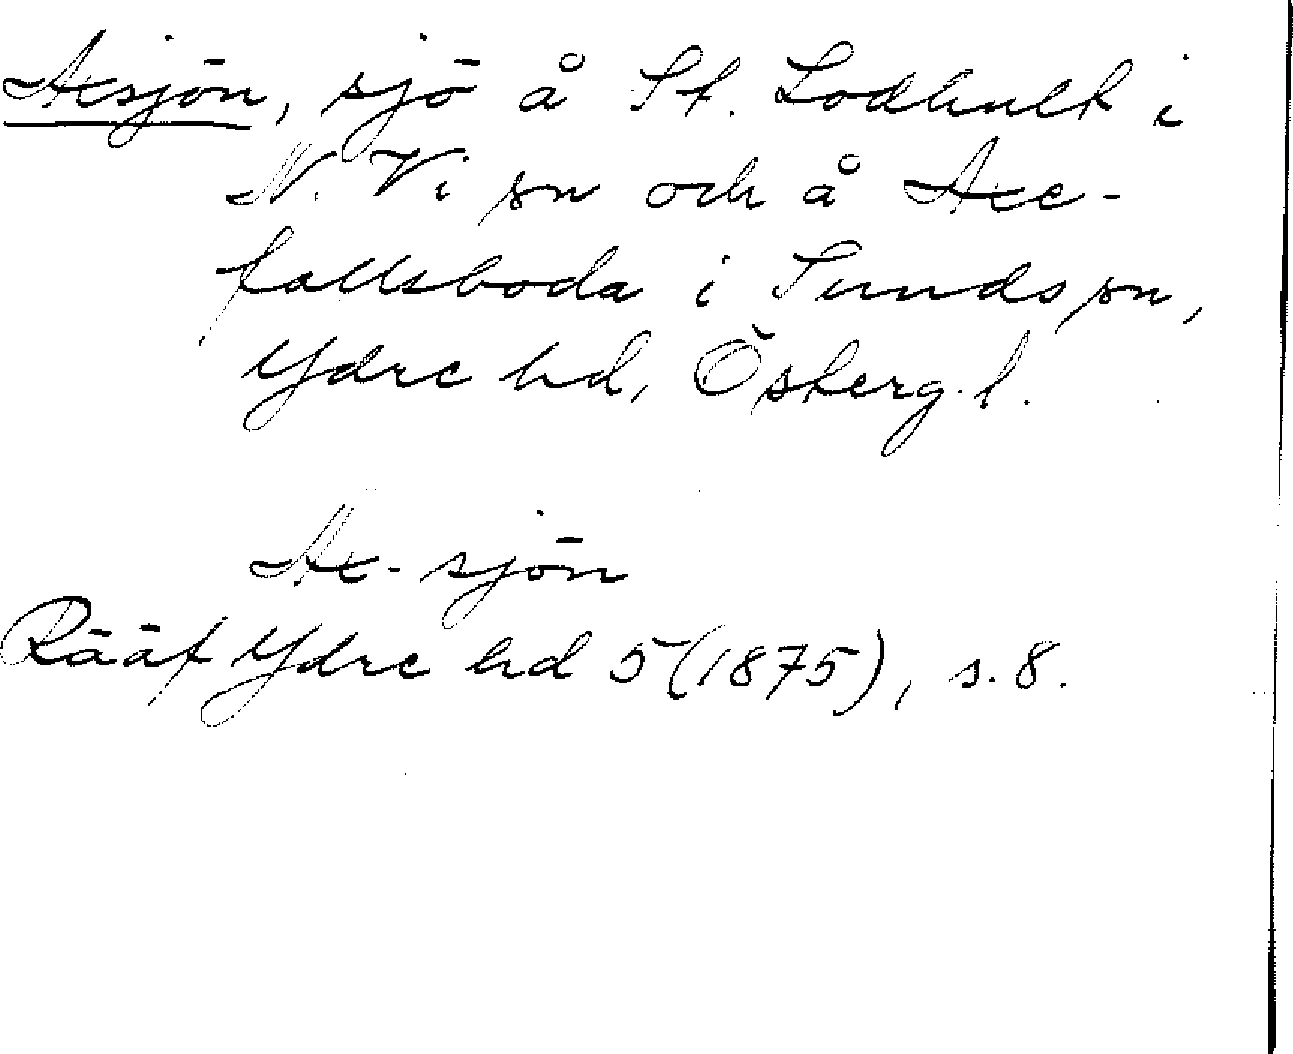 Axsjön, sjö å St. Lodhult i
N. Vi sn och å Axe-
fallsboda i Sunds sn,
Ydre hd, Österg.l.
Ax-sjön
Rääf Ydre hd 5 (1875), s. 8.